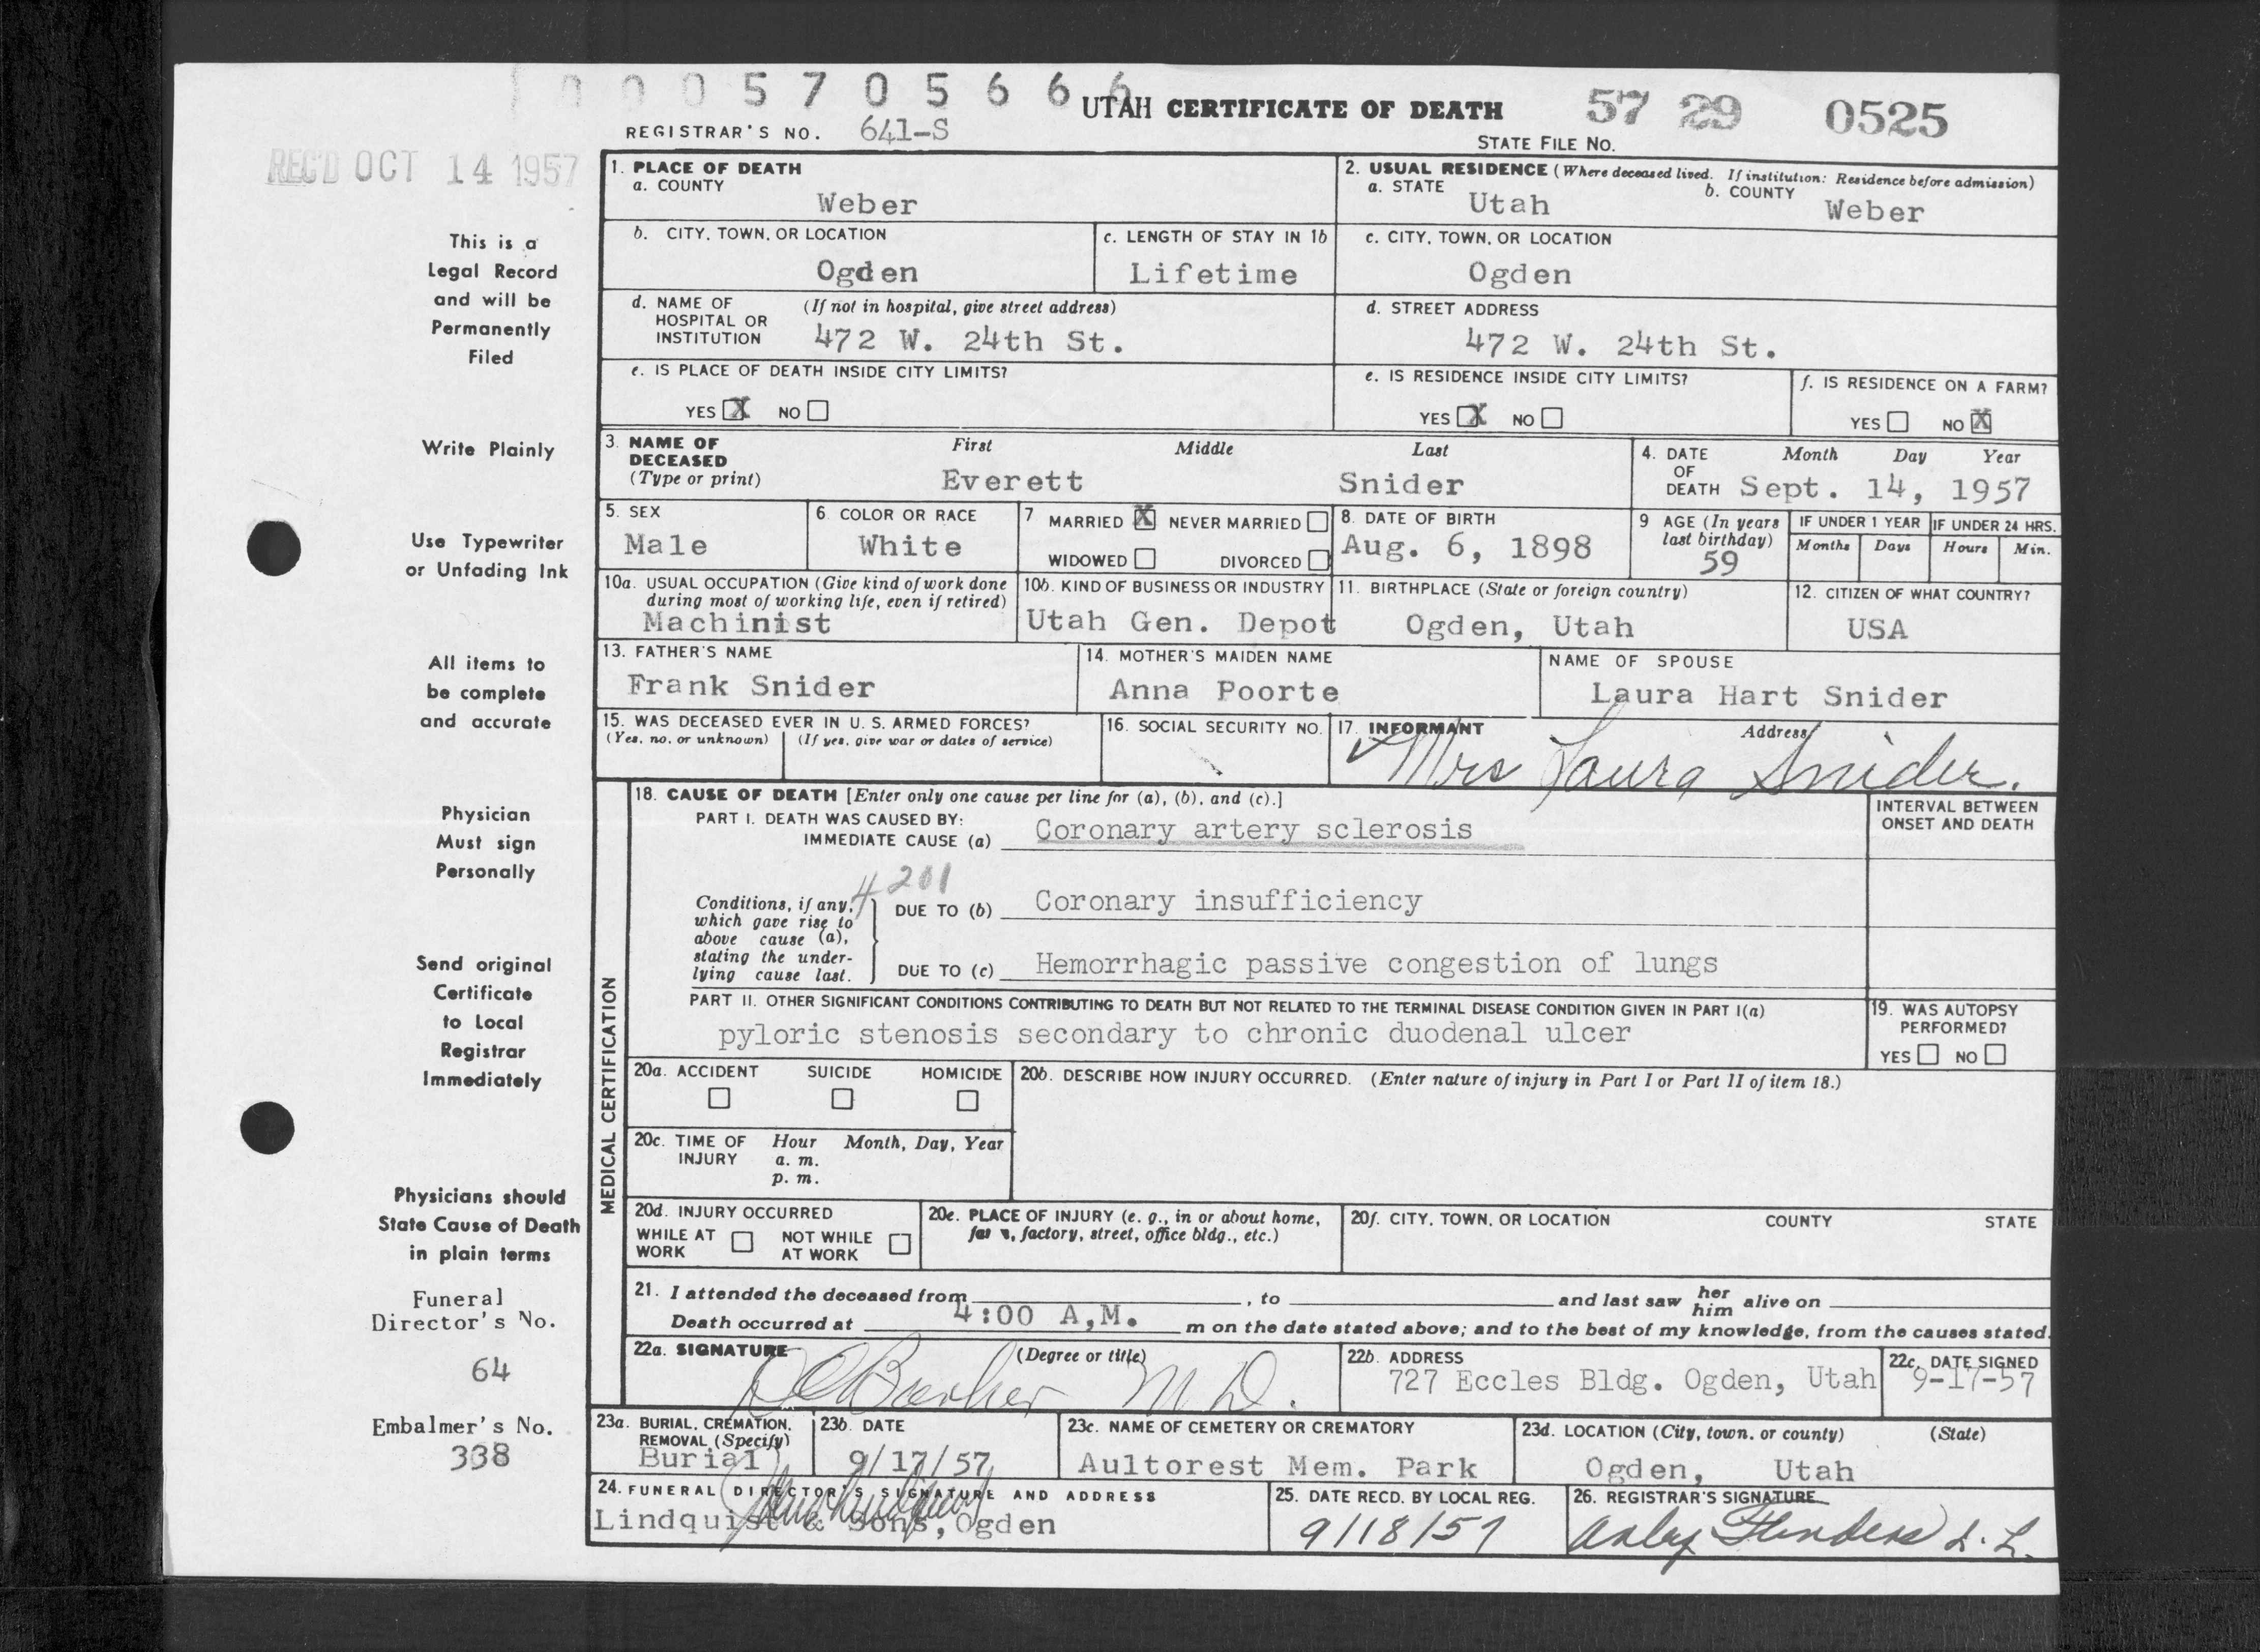 0 0 0 5 7 0 5 6 6 6
UTAH CERTIFICATE OF DEATH 57 29 0525
REGISTRAR'S NO. 641-S
STATE FILE NO.
REC'D OCT 14 1957
This is a
Legal Record
and will be
Permanently
Filed
Write Plainly
Use Typewriter
or Unfading Ink
All items to
be complete
and accurate
Physician
Must sign
Personally
Send original
Certificate
to Local
Registrar
Immediately
Physicians should
State Cause of Death
in plain terms
Funeral
Director's No.
64
Embalmer's No.
338
1. PLACE OF DEATH
a. COUNTY
Weber
2. USUAL RESIDENCE (Where deceased lived. If institution: Residence before admission)
a. STATE
Utah
b. COUNTY
Weber
b. CITY, TOWN, OR LOCATION
Ogden
c. LENGTH OF STAY IN 1b
Lifetime
c. CITY, TOWN, OR LOCATION
Ogden
d. NAME OF HOSPITAL OR INSTITUTION
(If not in hospital, give street address)
472 W. 24th St.
d. STREET ADDRESS
472 W. 24th St.
e. IS PLACE OF DEATH INSIDE CITY LIMITS?
YES X NO
e. IS RESIDENCE INSIDE CITY LIMITS?
YES X NO
f. IS RESIDENCE ON A FARM?
YES NO X
3. NAME OF DECEASED
(Type or print)
First Middle Last
Everett Snider
4. DATE OF DEATH
Month Day Year
Sept. 14, 1957
5. SEX
Male
6. COLOR OR RACE
White
7 MARRIED X NEVER MARRIED
WIDOWED DIVORCED
8. DATE OF BIRTH
Aug. 6, 1898
9 AGE (In years last birthday)
59
IF UNDER 1 YEAR
Months Days
IF UNDER 24 HRS.
Hours Min.
10a. USUAL OCCUPATION (Give kind of work done during most of working life, even if retired)
Machinist
10b. KIND OF BUSINESS OR INDUSTRY
Utah Gen. Depot
11. BIRTHPLACE (State or foreign country)
Ogden, Utah
12. CITIZEN OF WHAT COUNTRY?
USA
13. FATHER'S NAME
Frank Snider
14. MOTHER'S MAIDEN NAME
Anna Poorte
NAME OF SPOUSE
Laura Hart Snider
15. WAS DECEASED EVER IN U. S. ARMED FORCES?
(Yes, no, or unknown) (If yes, give war or dates of service)
16. SOCIAL SECURITY NO.
17. INFORMANT Address
Mrs Laura Snider.
MEDICAL CERTIFICATION
18. CAUSE OF DEATH [Enter only one cause per line for (a), (b), and (c).]
INTERVAL BETWEEN ONSET AND DEATH
PART I. DEATH WAS CAUSED BY:
IMMEDIATE CAUSE (a) Coronary artery sclerosis
4201
Conditions, if any, which gave rise to above cause (a), stating the underlying cause last.
DUE TO (b) Coronary insufficiency
DUE TO (c) Hemorrhagic passive congestion of lungs
PART II. OTHER SIGNIFICANT CONDITIONS CONTRIBUTING TO DEATH BUT NOT RELATED TO THE TERMINAL DISEASE CONDITION GIVEN IN PART I(a)
pyloric stenosis secondary to chronic duodenal ulcer
19. WAS AUTOPSY PERFORMED?
YES NO
20a. ACCIDENT SUICIDE HOMICIDE
20b. DESCRIBE HOW INJURY OCCURRED. (Enter nature of injury in Part I or Part II of item 18.)
20c. TIME OF INJURY
Hour Month, Day, Year
a. m.
p. m.
20d. INJURY OCCURRED
WHILE AT WORK NOT WHILE AT WORK
20e. PLACE OF INJURY (e. g., in or about home, farm, factory, street, office bldg., etc.)
20f. CITY, TOWN, OR LOCATION COUNTY STATE
21. I attended the deceased from , to and last saw her him alive on
Death occurred at 4:00 A,M. m on the date stated above; and to the best of my knowledge, from the causes stated.
22a. SIGNATURE (Degree or title)
Barker M D.
22b. ADDRESS
727 Eccles Bldg. Ogden, Utah
22c. DATE SIGNED
9-17-57
23a. BURIAL, CREMATION, REMOVAL (Specify)
Burial
23b. DATE
9/17/57
23c. NAME OF CEMETERY OR CREMATORY
Aultorest Mem. Park
23d. LOCATION (City, town, or county) (State)
Ogden, Utah
24. FUNERAL DIRECTOR'S SIGNATURE AND ADDRESS
Lindquist & Sons, Ogden
25. DATE RECD. BY LOCAL REG.
9/18/57
26. REGISTRAR'S SIGNATURE
Flinders